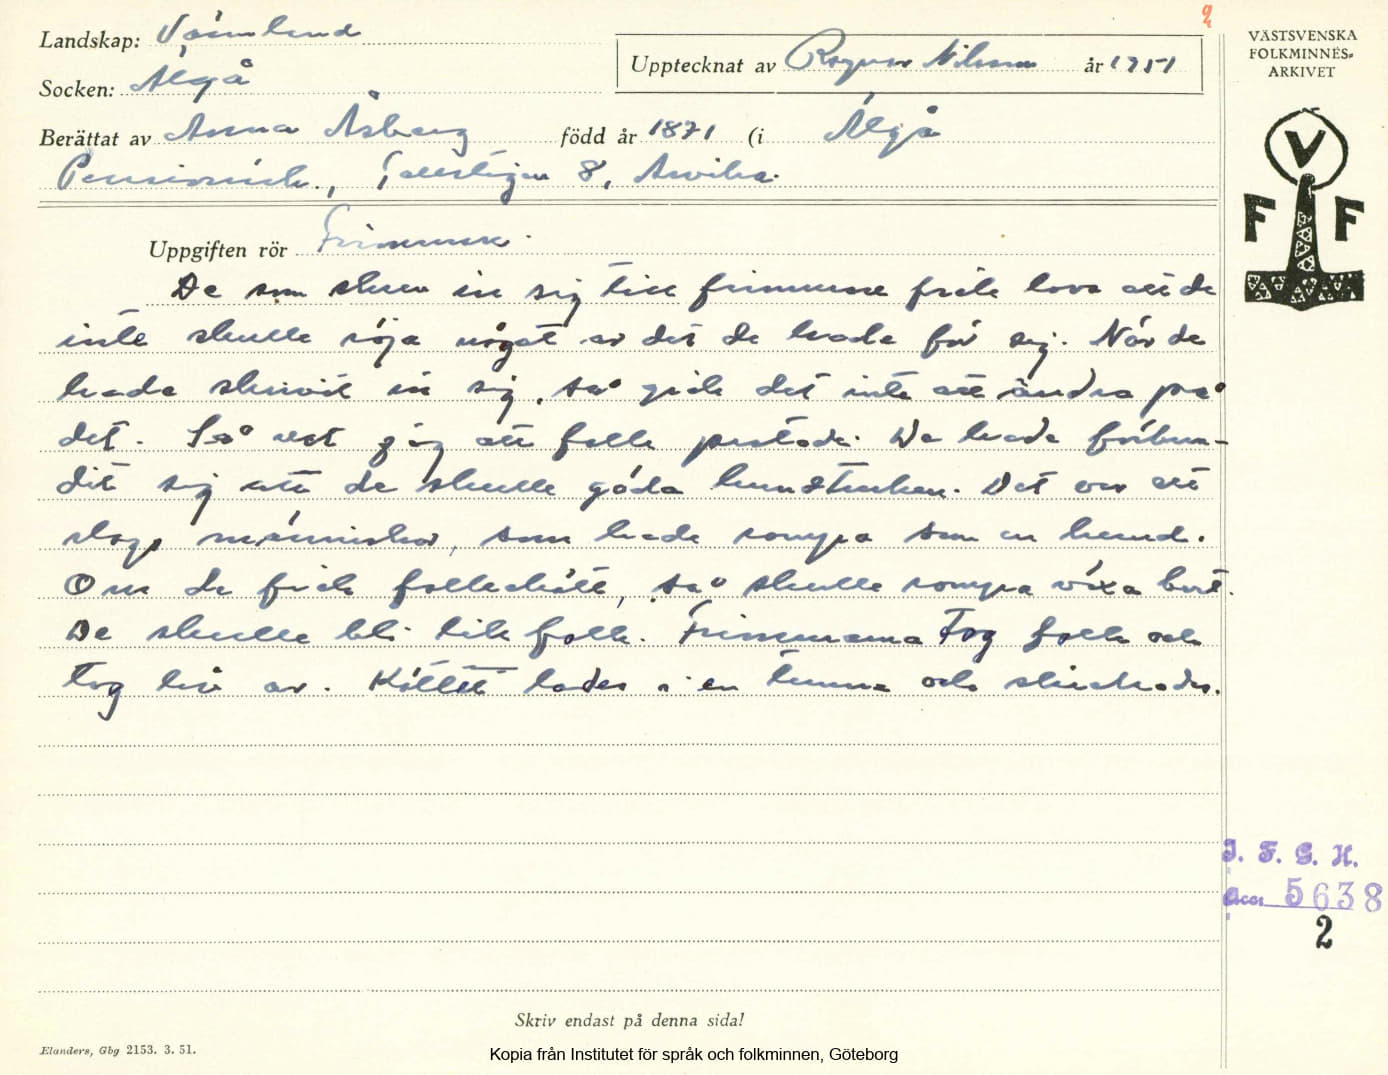 Landskap: Värmland
Socken: Älgå
Upptecknat av Ragnar Nilsson år 1951
Berättat av Anna Åsberg född år 1871 (i Älgå
Pensionärh., 8, Arvika.
Uppgiften rör Frimurare.
De som skrev in sig till frimurarne fick lova att de
inte skulle röja något av det de hade för sig. När de
hade skrivit in sig, så gick det inte att ändra på
det. Så vet jag att folk pratade. De hade förbun-
dit sig att de skulle göda hundturken. Det var ett
slags människor, som hade rompa som en hund.
Om de fick folkekött, så skulle rompa växa bort.
De skulle bli lik folk. Frimurarna tog folk och
tog liv av. Köttet lades i en tunna och skickades.
VÄSTSVENSKA
FOLKMINNES-
ARKIVET
V
F F
I. F. G. H.
Acc. 5638
2
Skriv endast på denna sida!
Elanders, Gbg 2153. 3. 51.
Kopia från Institutet för språk och folkminnen, Göteborg